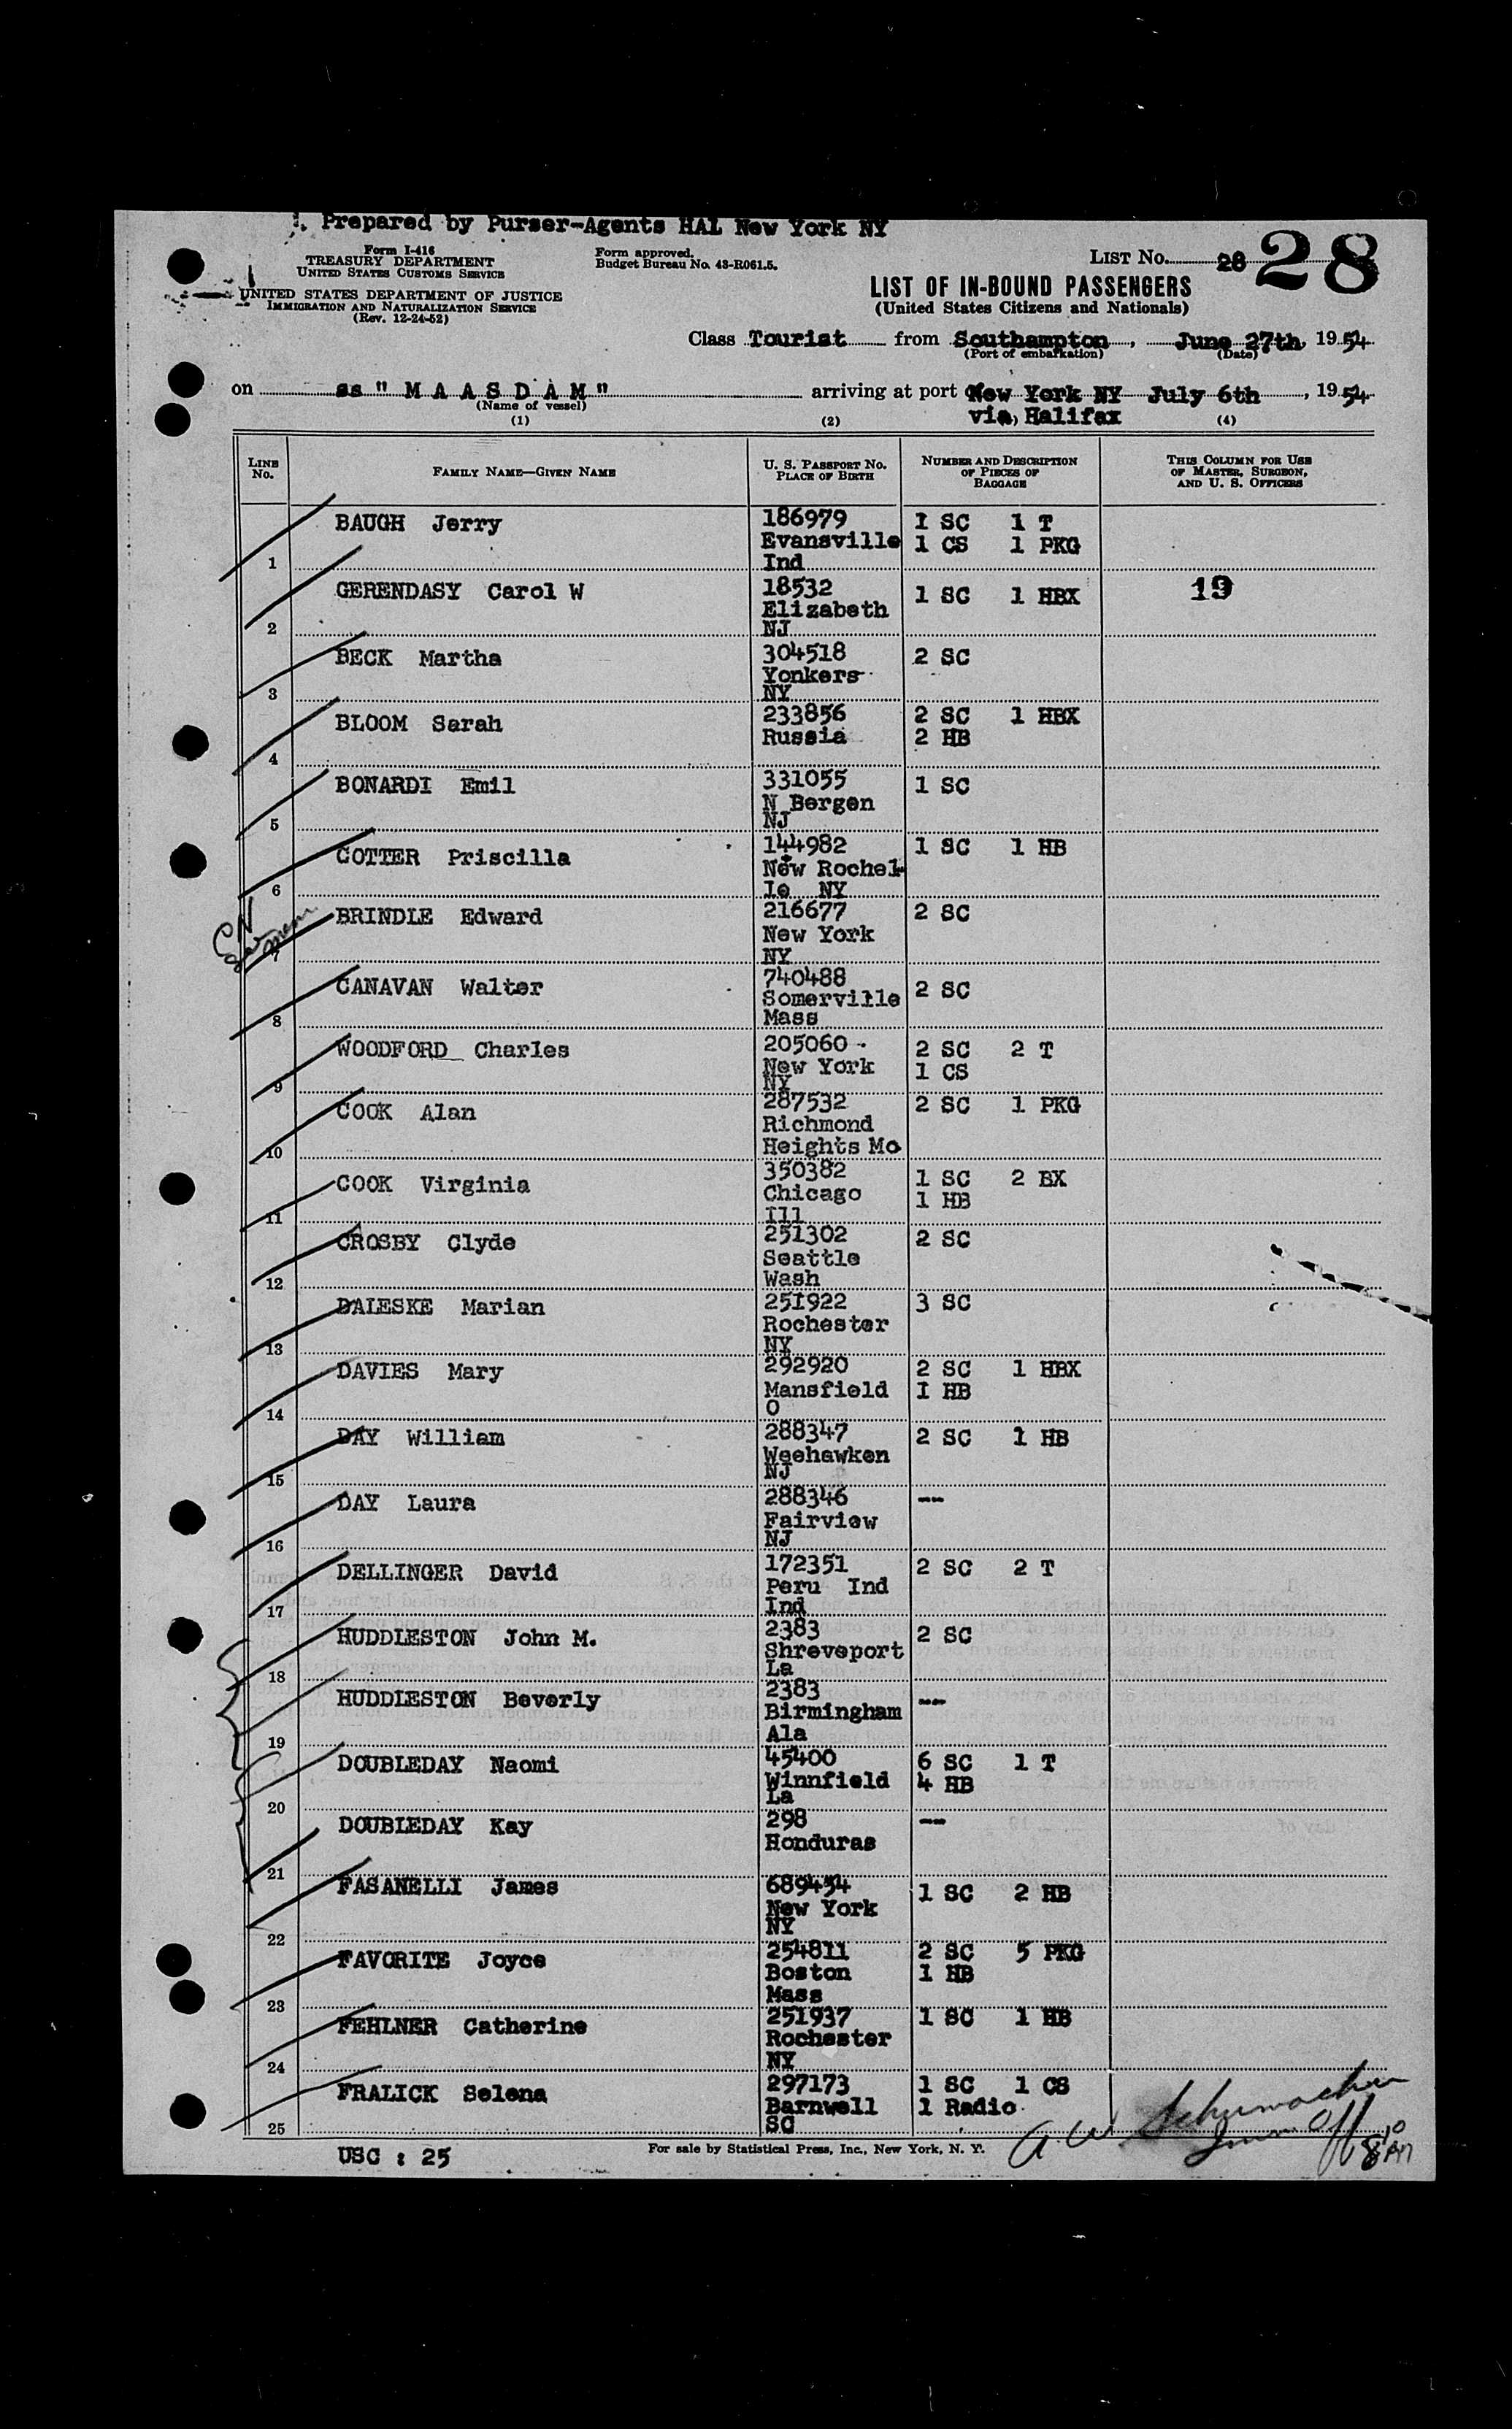 Prepared by Purser-Agents HAL New York NY
Form I-416
TREASURY DEPARTMENT
UNITED STATES CUSTOMS SERVICE
UNITED STATES DEPARTMENT OF JUSTICE
IMMIGRATION AND NATURALIZATION SERVICE
(Rev. 12-24-52)
Form approved.
Budget Bureau No. 43-R061.5.
LIST No. 28 28
LIST OF IN-BOUND PASSENGERS
(United States Citizens and Nationals)
Class Tourist from Southampton, June 27th, 1954
(Port of embarkation) (Date)
on ss " M A A S D A M " arriving at port of New York NY July 6th, 1954
(Name of vessel) via Halifax
(1) (2) (4)
LINE No. FAMILY NAME—GIVEN NAME U. S. PASSPORT NO. PLACE OF BIRTH NUMBER AND DESCRIPTION OF PIECES OF BAGGAGE THIS COLUMN FOR USE OF MASTER, SURGEON, AND U. S. OFFICERS
BAUGH Jerry 186979 1 SC 1 T
Evansville 1 CS 1 PKG
1 Ind
GERENDASY Carol W 18532 1 SC 1 HBX 19
Elizabeth
2 NJ
BECK Martha 304518 2 SC
Yonkers
3 NY
BLOOM Sarah 233856 2 SC 1 HBX
Russia 2 HB
4
BONARDI Emil 331055 1 SC
N Bergen
5 NJ
COTTER Priscilla 144982 1 SC 1 HB
New Rochel
6 le NY
BRINDLE Edward 216677 2 SC
New York
7 NY
CANAVAN Walter 740488 2 SC
Somerville
8 Mass
WOODFORD Charles 205060 2 SC 2 T
New York 1 CS
9 NY
COOK Alan 287532 2 SC 1 PKG
Richmond
10 Heights Mo
COOK Virginia 350382 1 SC 2 BX
Chicago 1 HB
11 Ill
CROSBY Clyde 251302 2 SC
Seattle
12 Wash
DALESKE Marian 251922 3 SC
Rochester
13 NY
DAVIES Mary 292920 2 SC 1 HBX
Mansfield 1 HB
14 O
DAY William 288347 2 SC 1 HB
Weehawken
15 NJ
DAY Laura 288346 --
Fairview
16 NJ
DELLINGER David 172351 2 SC 2 T
Peru Ind
17 Ind
HUDDLESTON John M. 2383 2 SC
Shreveport
18 La
HUDDLESTON Beverly 2383 --
Birmingham
19 Ala
DOUBLEDAY Naomi 45400 6 SC 1 T
Winnfield 4 HB
20 La
DOUBLEDAY Kay 298 --
Honduras
21
FASANELLI James 689454 1 SC 2 HB
New York
22 NY
FAVORITE Joyce 254811 2 SC 5 PKG
Boston 1 HB
23 Mass
FEHLNER Catherine 251937 1 SC 1 HB
Rochester
24 NY
FRALICK Selena 297173 1 SC 1 CS
Barnwell 1 Radio
25 SC
A W Schumacher
Imm. Off
USC : 25 For sale by Statistical Press, Inc., New York, N. Y.